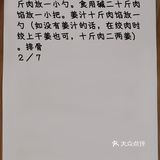 斤肉放一小勺。食用碱二十斤肉
馅放一小把。姜汁十斤肉馅放一
勺（如没有姜汁的话，在绞肉时
绞上干姜也可，十斤肉二两姜）
。排骨
2／7
大众点评